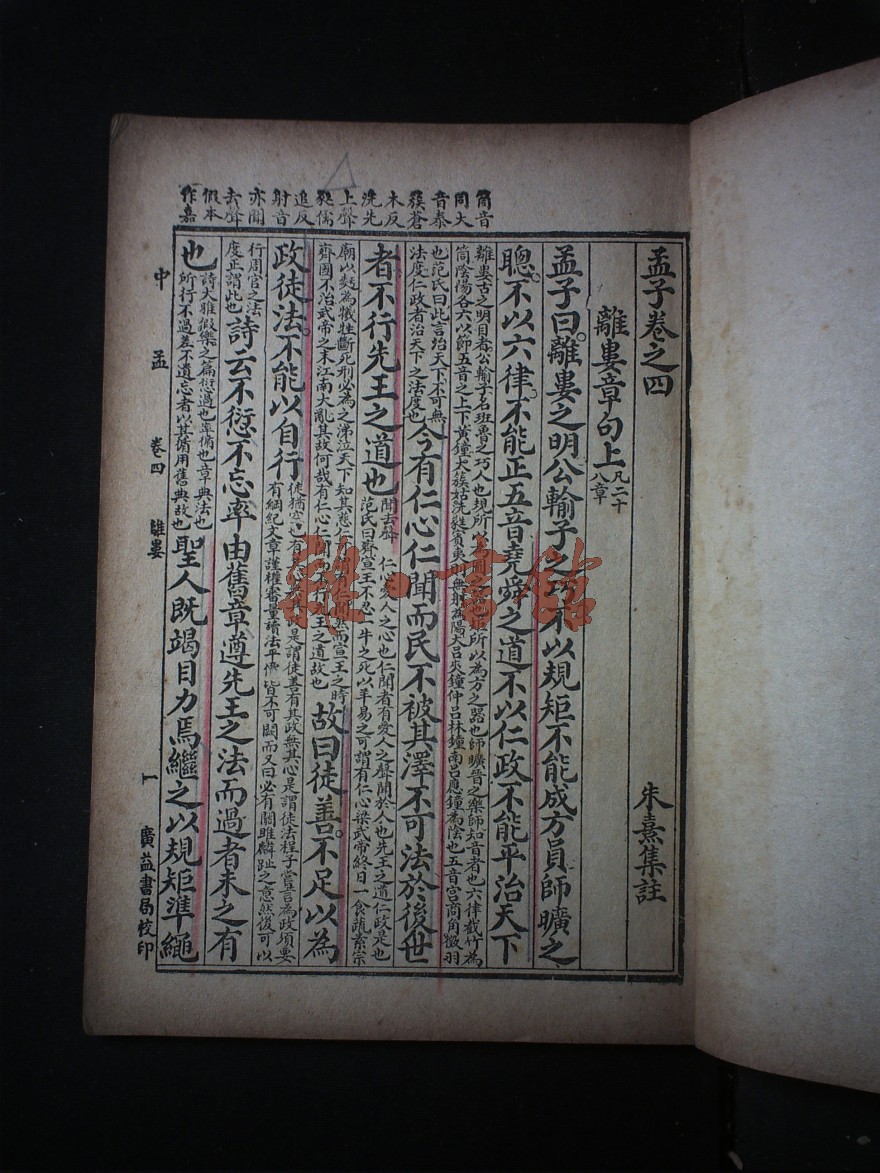 筒音
同大
音泰
簇蒼
木反
洗先
上聲
蕤儒
追反
射音
亦聞
去聲
假本
作嘉
孟子卷之四 朱熹集註
離婁章句上 凡二十八章
孟子曰離婁之明公輸子之巧不以規矩不能成方員師曠之
聰不以六律不能正五音堯舜之道不以仁政不能平治天下
離婁古之明目者公輸子名班魯之巧人也規所以為圓之器也矩所以為方之器也師曠晉之樂師知音者也六律截竹為
筒陰陽各六以節五音之上下黃鐘大簇姑洗蕤賓夷則無射為陽大呂夾鐘仲呂林鐘南呂應鐘為陰也五音宮商角徵羽
也范氏曰此言治天下不可無
法度仁政者治天下之法度也
今有仁心仁聞而民不被其澤不可法於後世
者不行先王之道也
聞去聲 仁心愛人之心也仁聞者有愛人之聲聞於人也先王之道仁政是也
范氏曰齊宣王不忍一牛之死以羊易之可謂有仁心梁武帝終日一食蔬素宗
廟以麪為犧牲斷死刑必為之涕泣天下知其慈仁可謂有仁聞然而宣王之時
齊國不治武帝之末江南大亂其故何哉有仁心仁聞而不行先王之道故也
故曰徒善不足以為
政徒法不能以自行
徒猶空也有其心無其政是謂徒善有其政無其心是謂徒法程子嘗言為政須要
有綱紀文章謹權審量讀法平價皆不可闕而又曰必有關雎麟趾之意然後可以
行周官之法
度正謂此也
詩云不愆不忘率由舊章遵先王之法而過者未之有
也
詩大雅假樂之篇愆過也率循也章典法也
所行不過差不遺忘者以其循用舊典故也
聖人既竭目力焉繼之以規矩準繩
中 孟 卷四 離婁 一 廣益書局校印
雜·書館